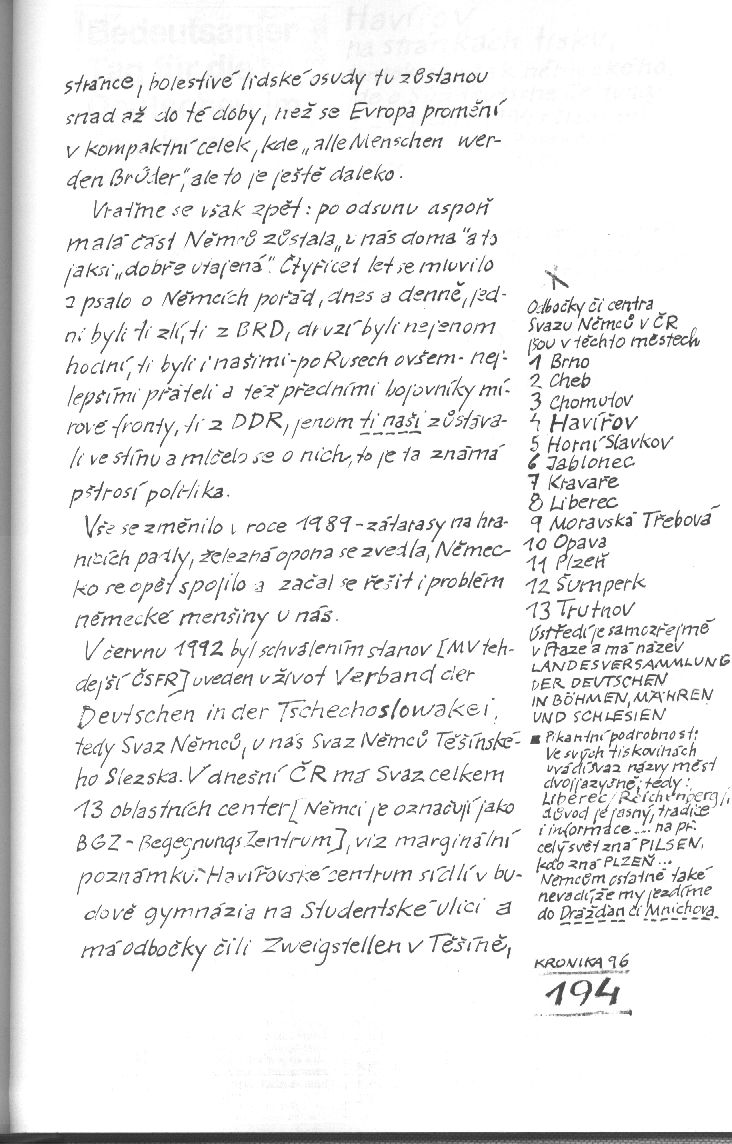 stránce, bolestivé lidské osudy tu zůstanou
snad až do té doby, než se Evropa promění
v kompaktní celek, kde „alle Menschen wer-
den Brüder", ale to je ještě daleko.
Vraťme se však zpět: po odsunu aspoň
malá část Němců zůstala „u nás doma" a to
jaksi „dobře utajená". Čtyřicet let se mluvilo
a psalo o Němcích pořád, dnes a denně, jed-
ni byli ti zlí, ti z BRD, druzí byli nejenom
hodní, ti byli i našimi - po Rusech ovšem - nej-
lepšími přáteli a též předními bojovníky mí-
rové fronty, ti z DDR, jenom ti naši zůstáva-
li ve stínu a mlčelo se o nich, to je ta známá
pštrosí politika.
Vše se změnilo v roce 1989 - zátarasy na hra-
nicích padly, železná opona se zvedla, Němec-
ko se opět spojilo a začal se řešit i problém
německé menšiny u nás.
V červnu 1992 byl schválením stanov [MV teh-
dejší ČSFR] uveden v život Verband der
Deutschen in der Tschechoslowakei,
tedy Svaz Němců, u nás Svaz Němců Těšínské-
ho Slezska. V dnešní ČR má Svaz celkem
13 oblastních center [Němci je označují jako
BGZ - Begegnungs Zentrum], viz marginální
poznámku. Havířovské centrum sídlí v bu-
dově gymnázia na Studentské ulici a
má odbočky čili Zweigstellen v Těšíně,
Odbočky či centra
Svazu Němců v ČR
jsou v těchto městech
1 Brno
2 Cheb
3 Chomutov
4 Havířov
5 Horní Slavkov
6 Jablonec
7 Kravaře
8 Liberec
9 Moravská Třebová
10 Opava
11 Plzeň
12 Šumperk
13 Trutnov
Ústředí je samozřejmě
v Praze a má název
LANDESVERSAMMLUNG
DER DEUTSCHEN
IN BÖHMEN, MÄHREN
UND SCHLESIEN
■ Pikantní podrobnost:
Ve svých tiskovinách
uvádí svaz názvy měst
dvojjazyčně, tedy:
Liberec/Reichenberg,
důvod je jasný, tradice
i informace ... na př.
celý svět zná PILSEN,
kdo zná PLZEŇ ...
Němcům ostatně také
nevadí, že my jezdíme
do Drážďan či Mnichova.
KRONIKA 96
194